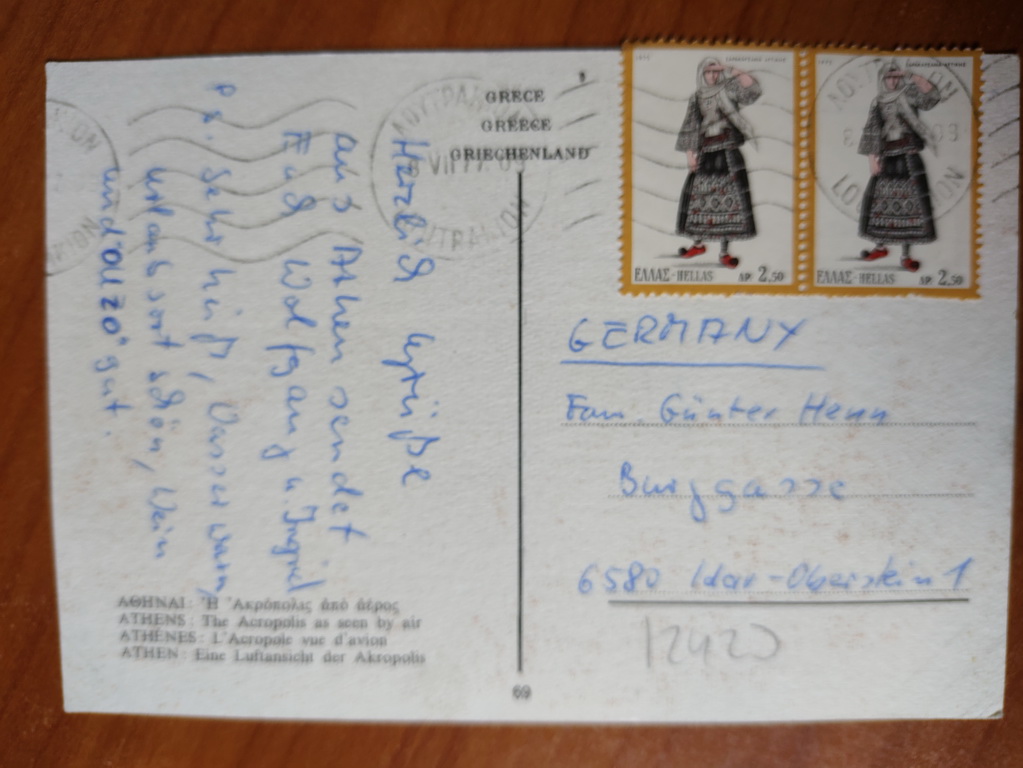 GRECE
GREECE
GRIECHENLAND
Herzlich Grüße
aus Athen sendet
Euch Wolfgang u. Ingrid
P.S. Sehr heiß, Wasser warm,
Urlaubsort schön, Wein
und "OUZO" gut.
ΑΘΗΝΑΙ: Ἡ Ἀκρόπολις ἀπό ἀέρος
ATHENS: The Acropolis as seen by air
ATHÈNES: L'Acropole vue d'avion
ATHEN: Eine Luftansicht der Akropolis
69
ΕΛΛΑΣ-HELLAS ΔΡ. 2,50
ΕΛΛΑΣ-HELLAS ΔΡ. 2,50
GERMANY
Fam. Günter Henn
Burggasse
6580 Idar-Oberstein 1
12420